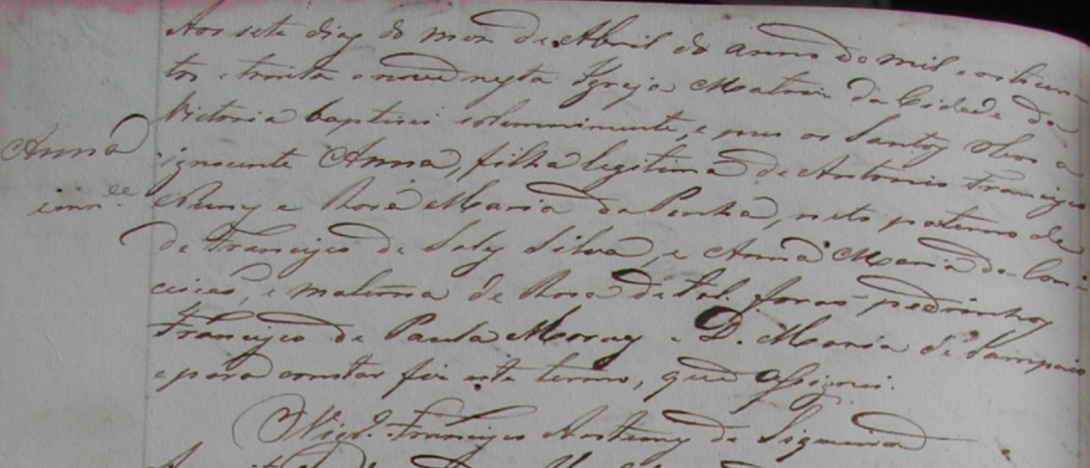 Aos sete dias do mes de Abril do anno de mil e oitocen-
tos e trinta e nove nesta Igreja Matriz da Cidade da
Victoria baptisei solemnimente, e pus os Santos Oleos a
Anna
ignocente Anna, filha legitima de Antonio Francisco
inn.ce
Nunes e Rosa Maria da Penha, neta paterna de
de Francisco de Sales Silva, e Anna Maria da Con-
ceicão, e materna de Rosa de tal. foraõ padrinhos
Francisco de Paula Moraes e D. Maria de Sampaio
e para constar fiz este termo, que assignei.
Vigr.º Francisco de Siqueira